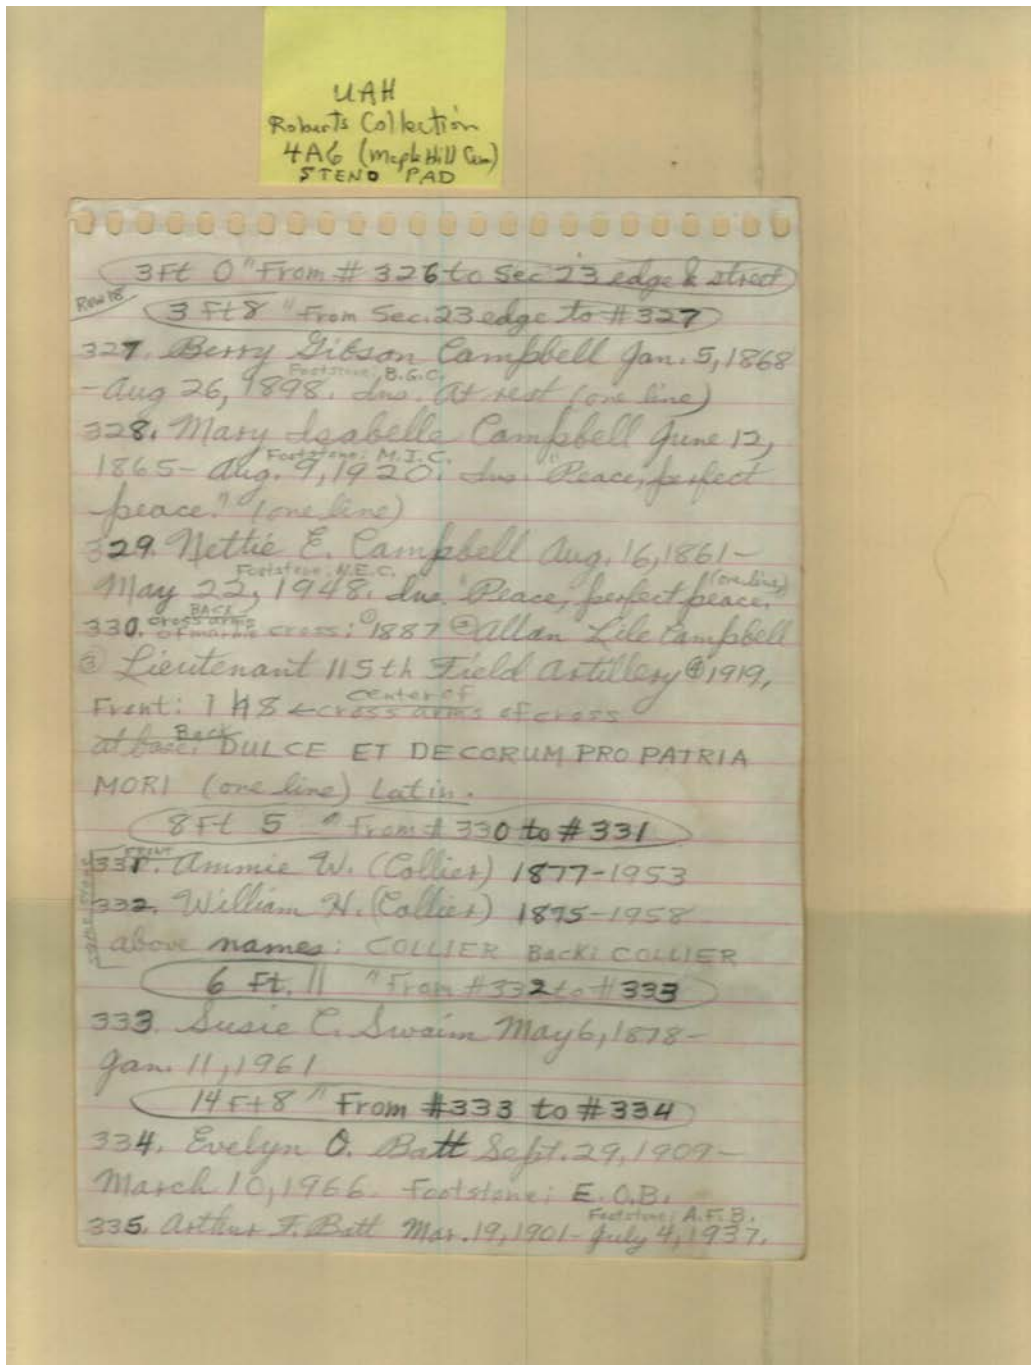 UAH
Roberts Collection
4A6 (Maple Hill Cem)
STENO PAD
3Ft 0" From # 326 to Sec 23 edge & street
Row 18
3 Ft 8 " From Sec. 23 edge to # 327
327. Berry Gibson Campbell Jan. 5, 1868
Footstone: B.G.C.
- Aug 26, 1898. Ins. At rest (one line)
328. Mary Isabelle Campbell June 12,
Footstone: M.I.C.
1865- Aug. 9, 1920. Ins. "Peace, perfect
peace." (one line)
329. Nettie E. Campbell Aug. 16, 1861-
Footstone: N.E.C.
(one line)
May 22, 1948. Ins. "Peace, perfect peace.
BACK
cross arms
330. of marble cross: ① 1887 ② Allan Lile Campbell
③ Lieutenant 115th Field Artillery ④ 1919,
center of
Front: IHS ← cross arms of cross
at base: Back DULCE ET DECORUM PRO PATRIA
MORI (one line) Latin.
8 Ft 5 " From # 330 to # 331
FRONT
331. Ammie W. (Collier) 1877-1953
332. William H. (Collier) 1875-1958
same stone
above names: COLLIER Back: COLLIER
6 Ft. 11 " From # 332 to # 333
333. Susie C. Swaim May 6, 1878-
Jan. 11, 1961
14 Ft 8 " From #333 to #334
334. Evelyn O. Batt Sept. 29, 1909-
March 10, 1966. Footstone: E.O.B.
Footstone: A.F.B.
335. Arthur F. Batt Mar. 19, 1901- July 4, 1937.